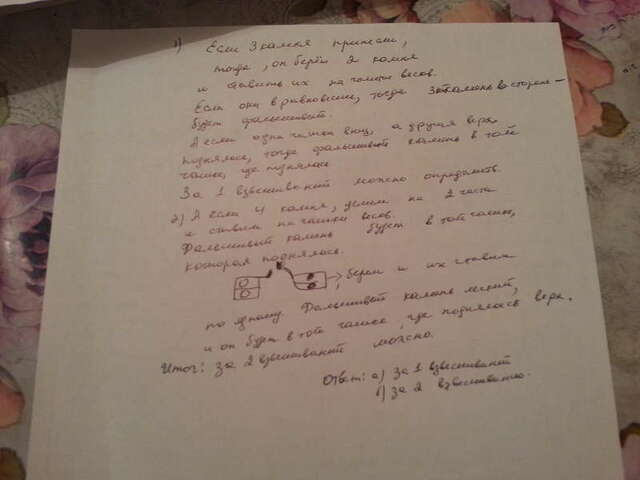 1) Если 3 камня принесли,
тогда, он берёт 2 камня
и ставить их на чашки весов.
Если они в равновесии, тогда 3 камень в стороне –
будет фальшивит.
А если одна чашка вниз, а другая верх,
поднялась, тогда фальшивый камень в той
чашке, где поднялась.
За 1 взвешивание можно определить.
2) А если 4 камня, делим на 2 части
и ставим на чашки весов.
Фальшивый камень будет в той чашке,
которая поднялась.
берем и их ставим
по одному. Фальшивый камень легкий,
и он будет в той чашке, где поднялась верх.
Итог: за 2 взвешивания можно.
Ответ: а) за 1 взвешивания
б) за 2 взвешивания.